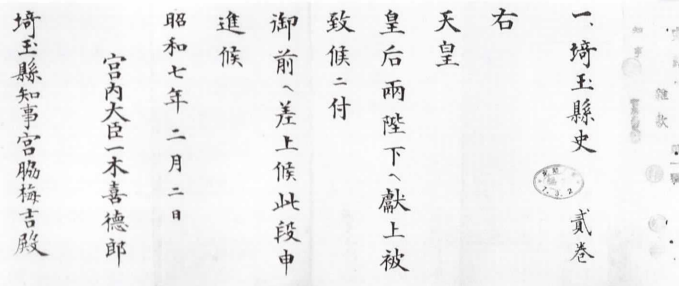 一、埼玉縣史　貳巻
右
天皇
皇后兩陛下へ獻上被
致候ニ付
御前へ差上候此段申
進候
昭和七年二月二日
宮内大臣一木喜德郎
埼玉縣知事宮脇梅吉殿